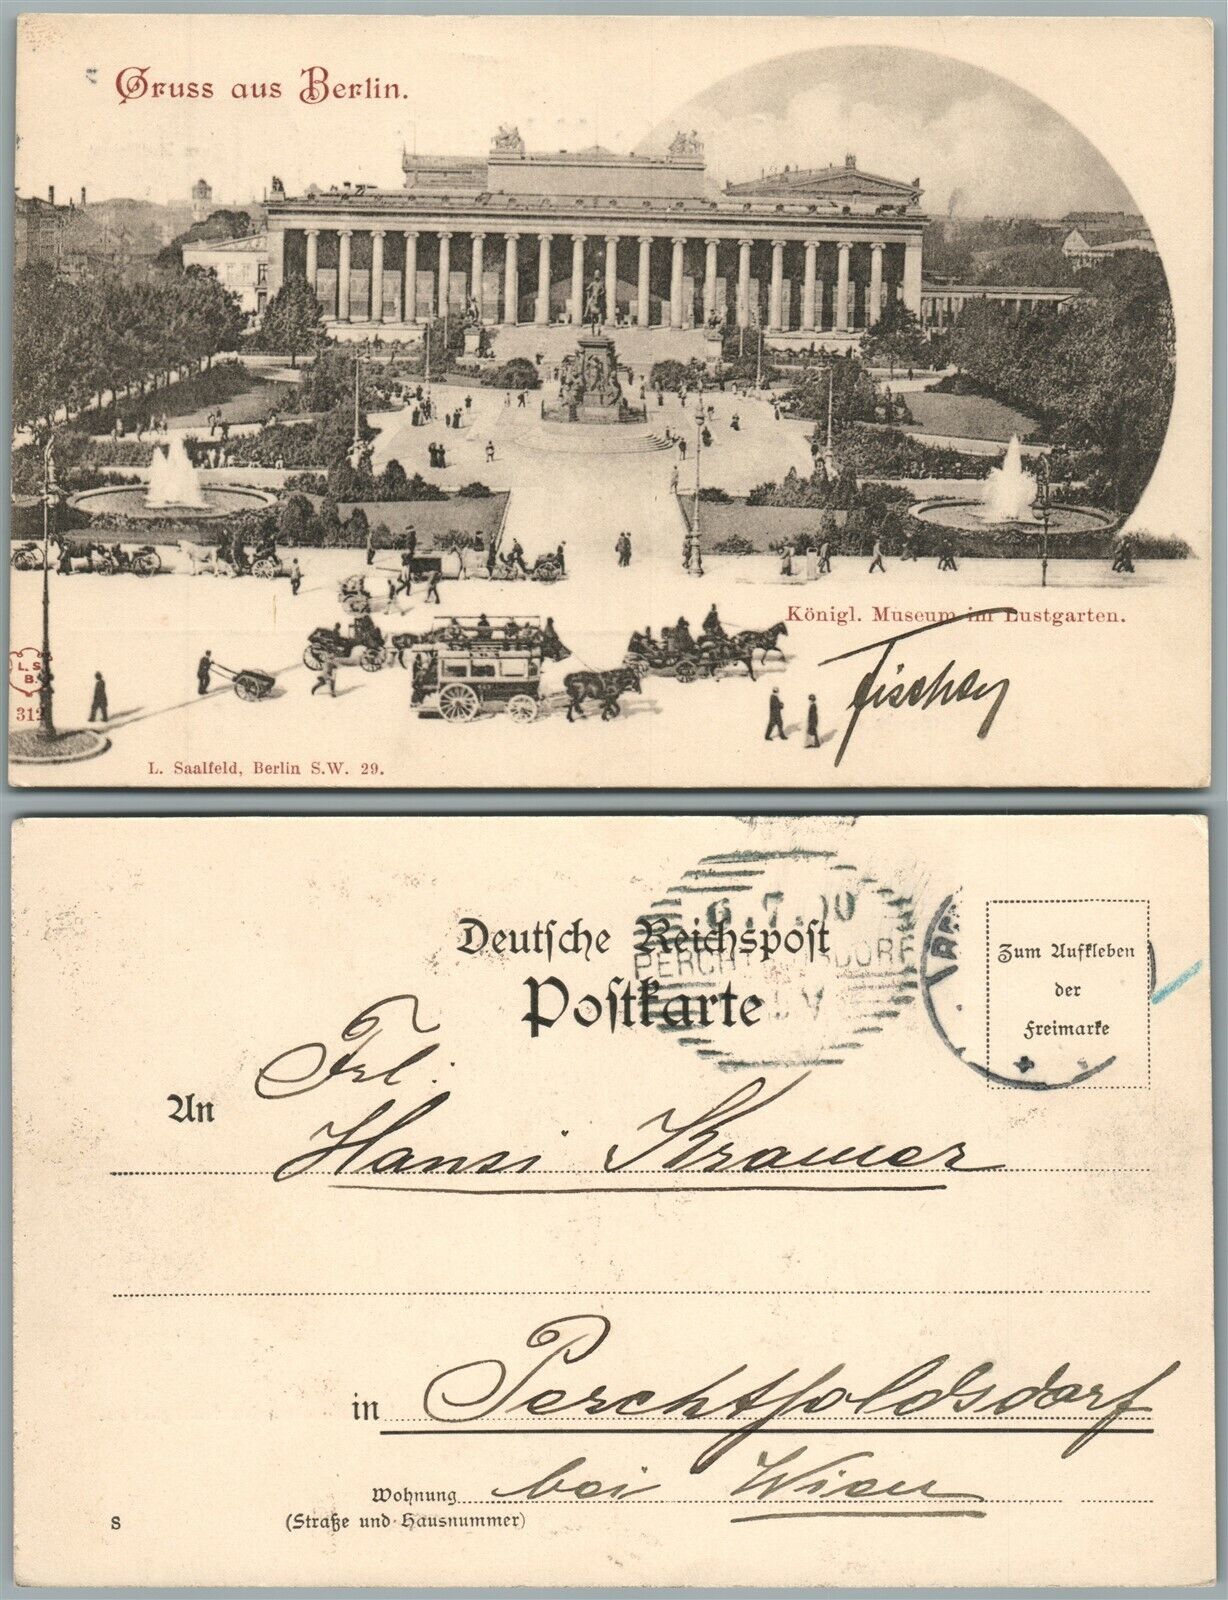 Gruss aus Berlin.
Königl. Museum im Lustgarten.
L. S.
B.
312
L. Saalfeld, Berlin S.W. 29.
6. 7. 00
Deutsche Reichspost
Postkarte
Zum Aufkleben
der
Freimarke
Frl.
An
Hansi Kramer
in Perchtholdsdorf
Wohnung bei Wien
(Straße und Hausnummer)
S